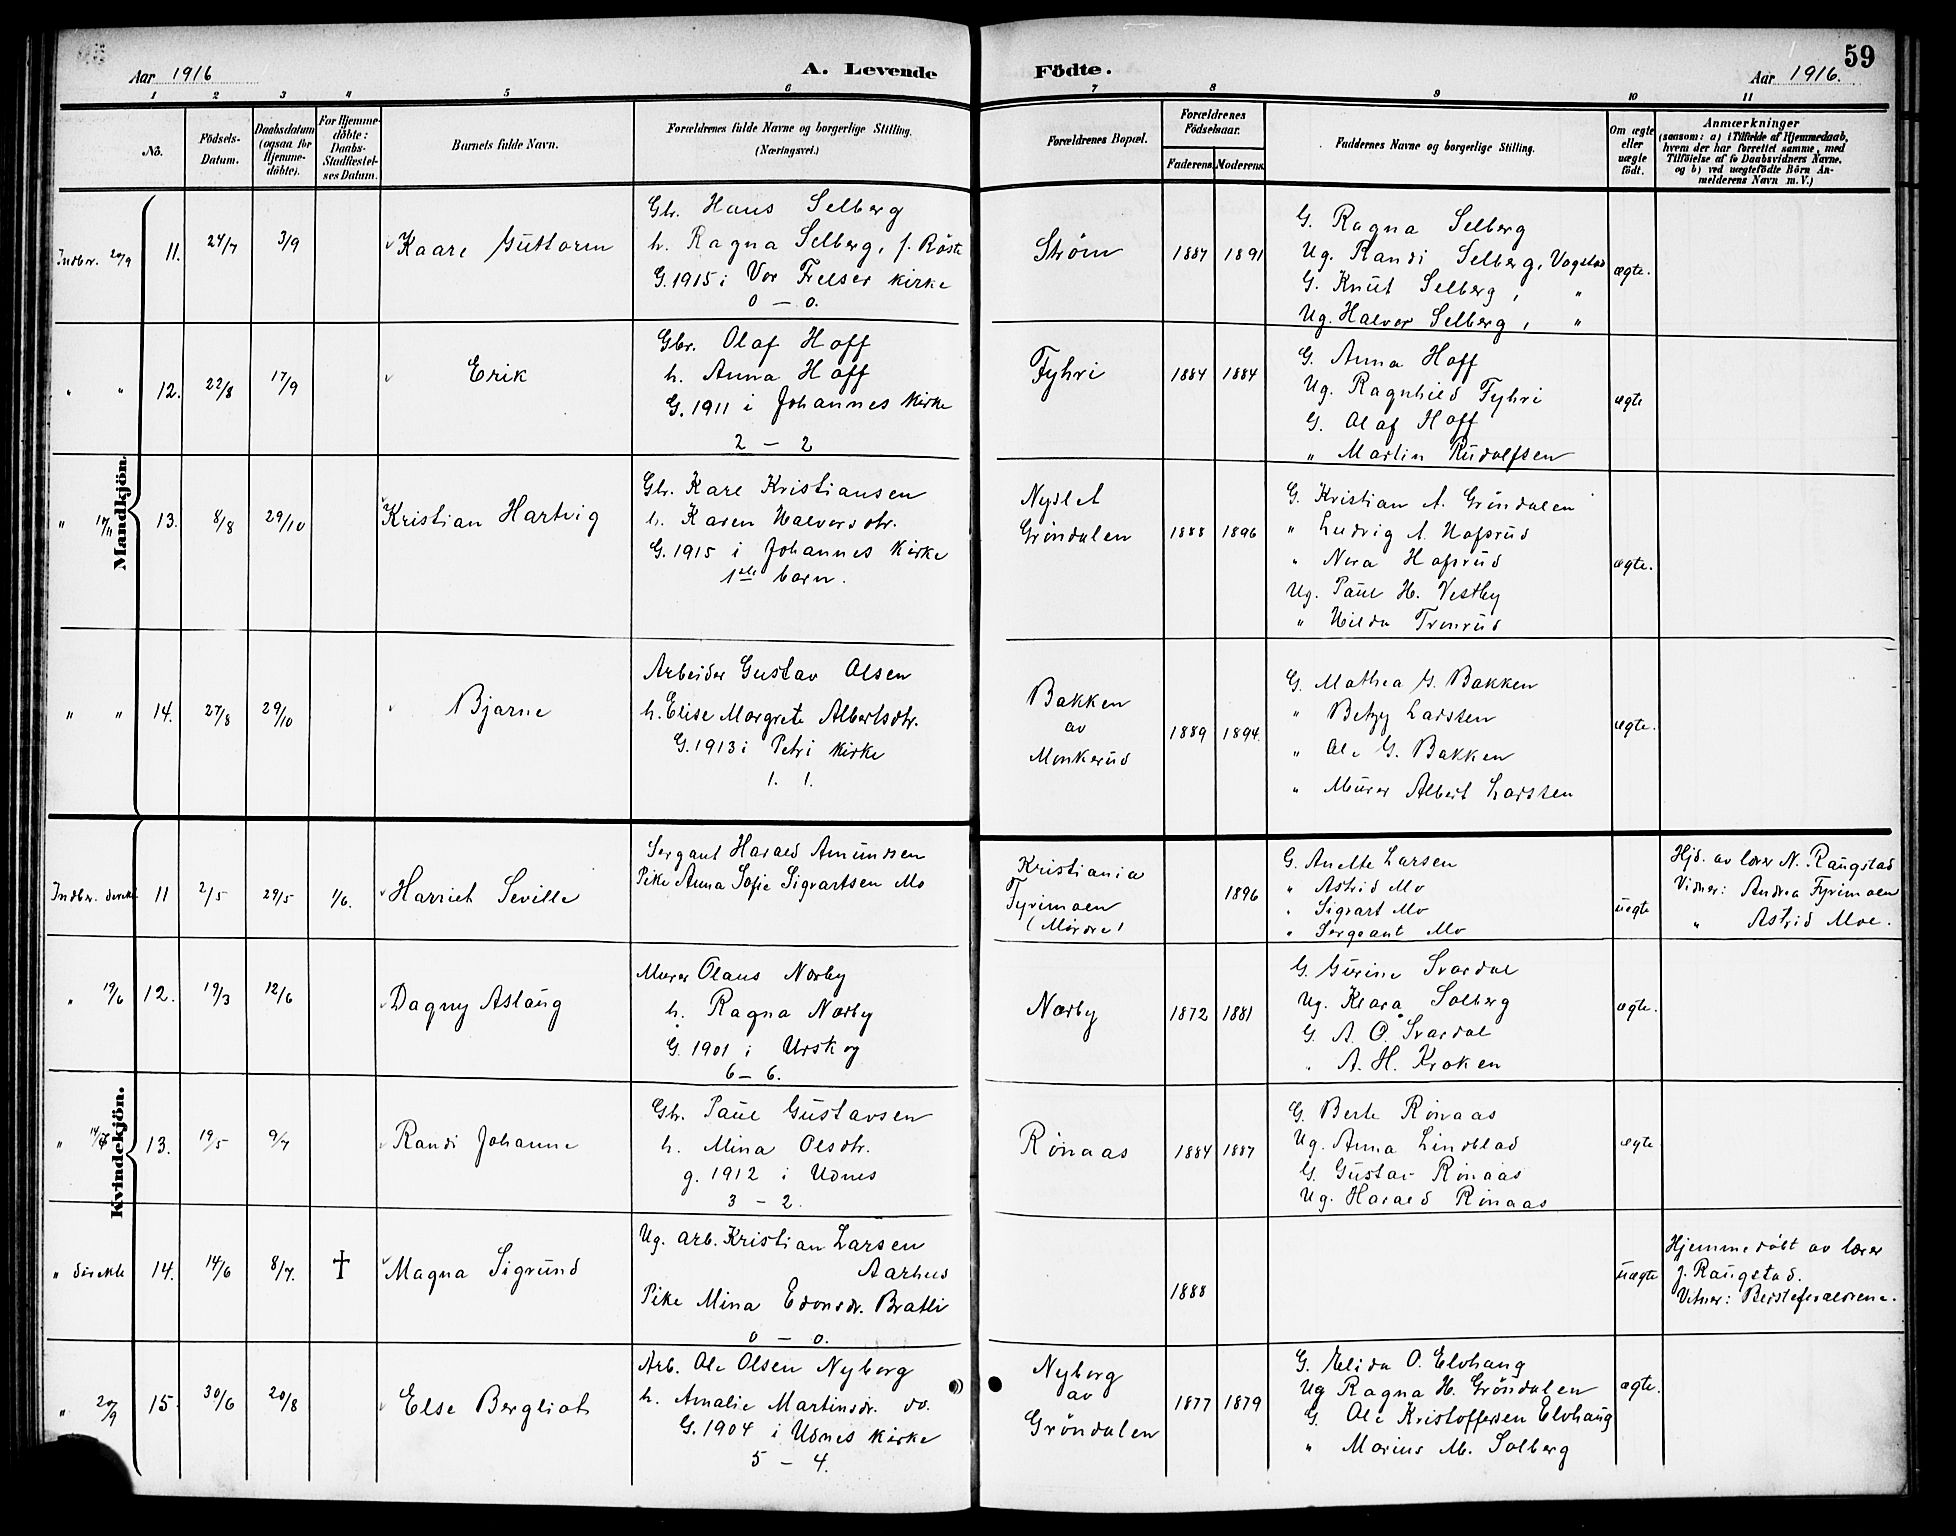 59
Aar 1916
A. Levende
Födte.
Aar 1916.
1 2 3 4 5 6 7 8 9 10 11
No.
Födsels-
Datum.
Daabsdatum
(ogsaa för
Hjemme-
döbte).
For Hjemme-
döbte:
Daabs-
Stadfæstel-
ses Datum.
Barnets fulde Navn.
Forældrenes fulde Navne og borgerlige Stilling.
(Næringsvei.)
Forældrenes Bopæl.
Forældrenes
Födselsaar.
Faderens. Moderens.
Faddernes Navne og borgerlige Stilling.
Om ægte
eller
uægte
födt.
Anmærkninger
(saasom: a) i Tilfælde af Hjemmedaab,
hvem der har forrettet samme, med
Tilföielse af to Daabsvidners Navne,
og b) ved uægtefödte Börn An-
melderens Navn m. V.)
Mandkjön.
Indber. 20/9 11. 24/7 3/9 Kaare Guttorm
Gbr. Hans Selberg
h. Ragna Selberg, f. Röste
G. 1915 i Vor Frelser kirke
0 – 0.
Strøm 1887 1891
G. Ragna Selberg
Ug. Randi Selberg, Vogstad
G. Knut Selberg, "
Ug. Halvor Selberg, "
ægte.
" " 12. 22/8 17/9 Erik
Gbr. Olaf Hoff
h. Anna Hoff
G. 1911 i Johannes kirke
2 – 2
Fyhri 1884 1884
G. Anna Hoff
Ug. Ragnhild Fyhri
G. Olaf Hoff
" Martin Rudolfsen
ægte
" 17/11 13. 8/8 29/10 Kristian Hartvig
Gbr. Karl Kristiansen
h. Karen Halvorsdtr.
G. 1915 i Johannes kirke
1ste barn.
Nyslet
Grøndalen 1888 1896
G. Kristian A. Grøndalen
" Ludvig A. Hofsrud
" Nora Hofsrud
Ug. Paul H. Vestby
" Hilda Tronrud
ægte.
" " 14. 27/8 29/10 Bjarne
Arbeider Gustav Olsen
h. Elise Margrete Albertsdtr.
G. 1913 i Petri kirke
1. 1.
Bakken
av
Monkerud 1889 1894.
G. Mathea G. Bakken
" Betzy Larsten
" Ole G. Bakken
" Murer Albert Larsten
ægte.
Kvindekjön.
Indber. direkte 11 2/5 29/5 1/6. Harriet Seville
Sergant Harald Amundsen
Pike Anna Sofie Sigvartsen Mo
Kristiania
Fyrimoen
(Mørdre) 1896
G. Anette Larsen
" Astrid Mo
" Sigvart Mo
" Sergeant Mo
uegte
Hjd. av lærer N. Raugstad
Vidner: Andrea Fyrimoen
" Astrid Moe.
" 19/6 12. 19/3 12/6 Dagny Aslaug
Murer Olaus Nørby
h. Ragna Nørby
G. 1901 i Urskog
6 – 6.
Nørby 1872 1881
G. Gurine Svardal
Ug. Klara Solberg
G. A. O. Svardal
" A. H. Kroken
ægte.
" 13. 19/5 9/7 Randi Johanne
Gbr. Paul Gustavsen
h. Mina Olsdtr.
g. 1912 i Udnes
3 – 2.
Rønaas 1884 1887
G. Berte Rønaas
Ug. Anna Lindblad
G. Gustav Rønaas
Ug. Harald Rønaas
ægte
" direkte 14. 14/6 8/7. † Magna Sigrund
Ug. arb. Kristian Larsen
Aarhus
Pike Mina Edonsdr. Bratli
0 – 0.
1888
uægte
Hjemmedöbt av lærer
J. Raugstad.
Vitner: Berstefoældrene.
" 20/9 15. 30/6 20/8 Else Bergliot
Arb. Ole Olsen Nyborg
h. Amalie Martinsdr. do.
G. 1904 i Udnes kirke
5 – 4.
Nyborg
av
Grøndalen 1877 1879
G. Elida O. Elvhaug
Ug Ragna H. Grøndalen
G. Ole Kristoffersen Elvhaug
" Marius M. Solberg
ægte.